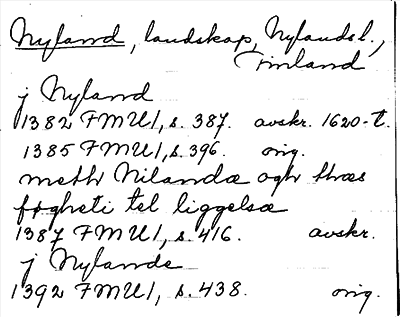 Nyland, landskap, Nylandsl.,
Finland
j Nyland
1382 FMU 1, s. 387. avskr. 1620-t.
1385 FMU 1, s. 396. orig.
meth Nilandæ ogh thæs
føgheti tel liggelsæ
1387 FMU 1, s. 416. avskr.
j Nylande
1392 FMU 1, s. 438. orig.